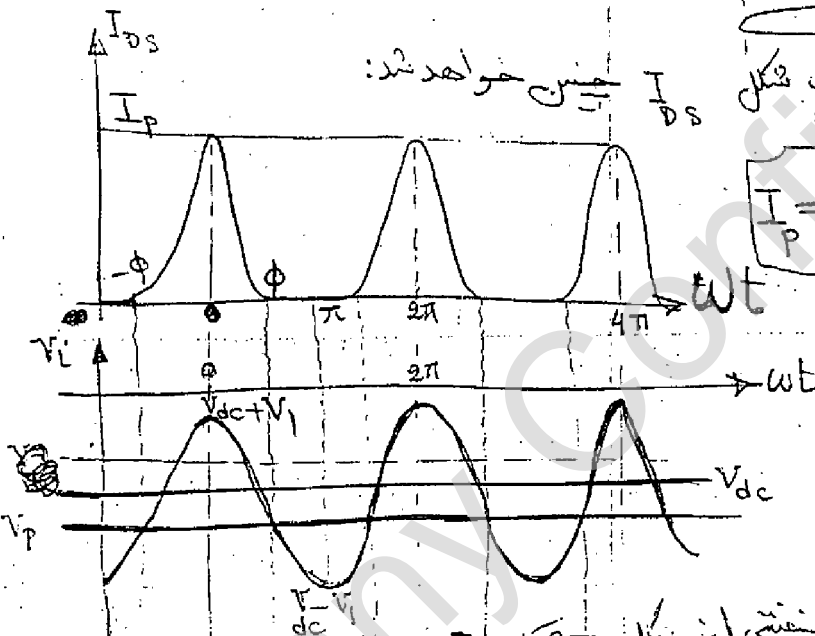 I_DS
شکل I_DS چنین خواهد شد:
I_P
I_P =
-ϕ ϕ
0 π 2π 4π ωt
V_i
0 2π ωt
V_dc+V_1
V_dc
V_P
V_dc-V_1
شکل